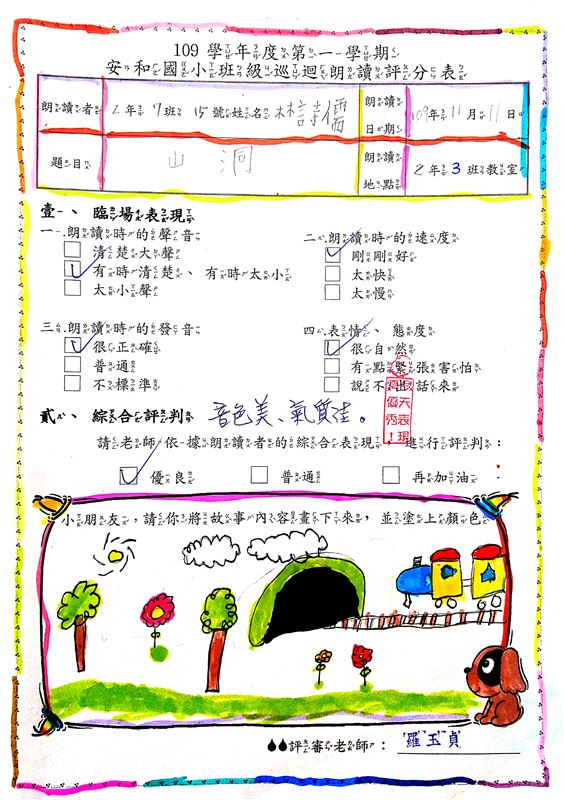 109學年度第一學期
安和國小班級巡迴朗讀評分表
朗讀者 2年7班 15號姓名林詩儒 朗讀日期 109年11月11日
題目 山洞 朗讀地點 2年3班教室
壹、臨場表現
一.朗讀時的聲音
清楚大聲
有時清楚、有時太小
太小聲
二.朗讀時的速度
剛剛好
太快
太慢
三.朗讀時的發音
很正確
普通
不標準
四.表情、態度
很自然
有點緊張害怕
說不出話來
今天表現
真優秀!
貳、綜合評判 音色美、氣質佳。
請老師依據朗讀者的綜合表現,進行評判:
優良 普通 再加油
小朋友,請你將故事內容畫下來,並塗上顏色
評審老師:羅玉貞